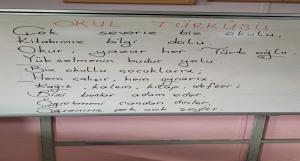 OKUL TÜRKÜSÜ
Çok severiz biz okulu,
Kitabımız bilgi dolu.
Okur yazar her Türk oğlu,
Yükselmenin budur yolu.
Biz okullu çocuklarız,
Hem çalışır, hem oynarız
Kağıt, kalem, kitap, defter;
Bizi bunlar adam eder.
Öğretmeni candan dinler,
Öğreniriz çok çok şeyler.